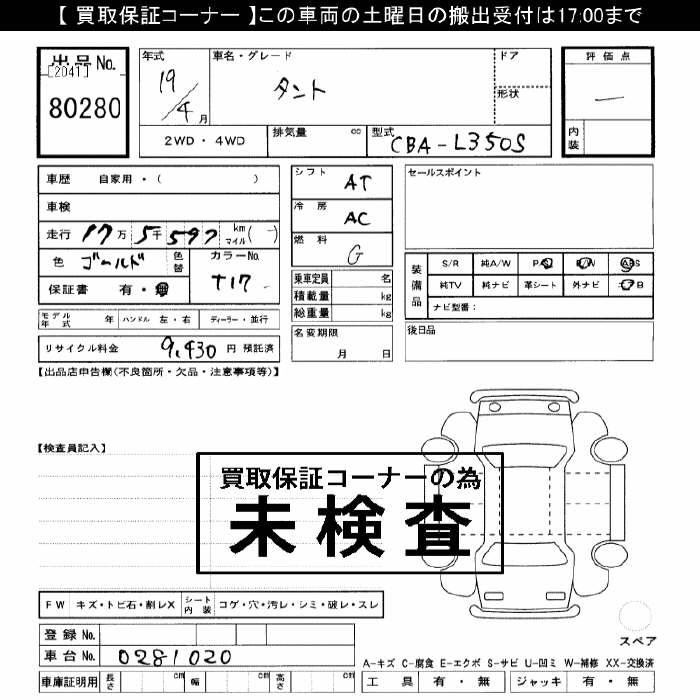 【 買取保証コーナー 】この車両の土曜日の搬出受付は17:00まで
出品No. [2041] 80280
年式 19/4月
車名・グレード タント
ドア
形状
評価点 —
内装
2WD・4WD
排気量 cc
型式 CBA-L350S
車歴 自家用・( )
車検
走行 17万5千597 km マイル(-)
色 ゴールド 色替
カラーNo. T17
保証書 有・無
モデル年式 年 ハンドル 左・右 ディーラー・並行
リサイクル料金 9,430 円 預託済
シフト AT
冷房 AC
燃料 G
乗車定員 名
積載量 kg
総重量 kg
名変期限 月 日
セールスポイント
装備品
S/R 純A/W P/S P/W ABS
純TV 純ナビ 革シート 外ナビ エアB
ナビ型番：
後日品
【出品店申告欄(不良箇所・欠品・注意事項等)】
【検査員記入】
買取保証コーナーの為
未検査
FW キズ・トビ石・割レX シート内装 コゲ・穴・汚レ・シミ・破レ・スレ
登録No.
車台No. 0281020
スペア
A-キズ C-腐食 E-エクボ S-サビ U-凹ミ W-補修 XX-交換済
車庫証明用 長さ cm 幅 cm 高さ cm
工具 有・無 ジャッキ 有・無